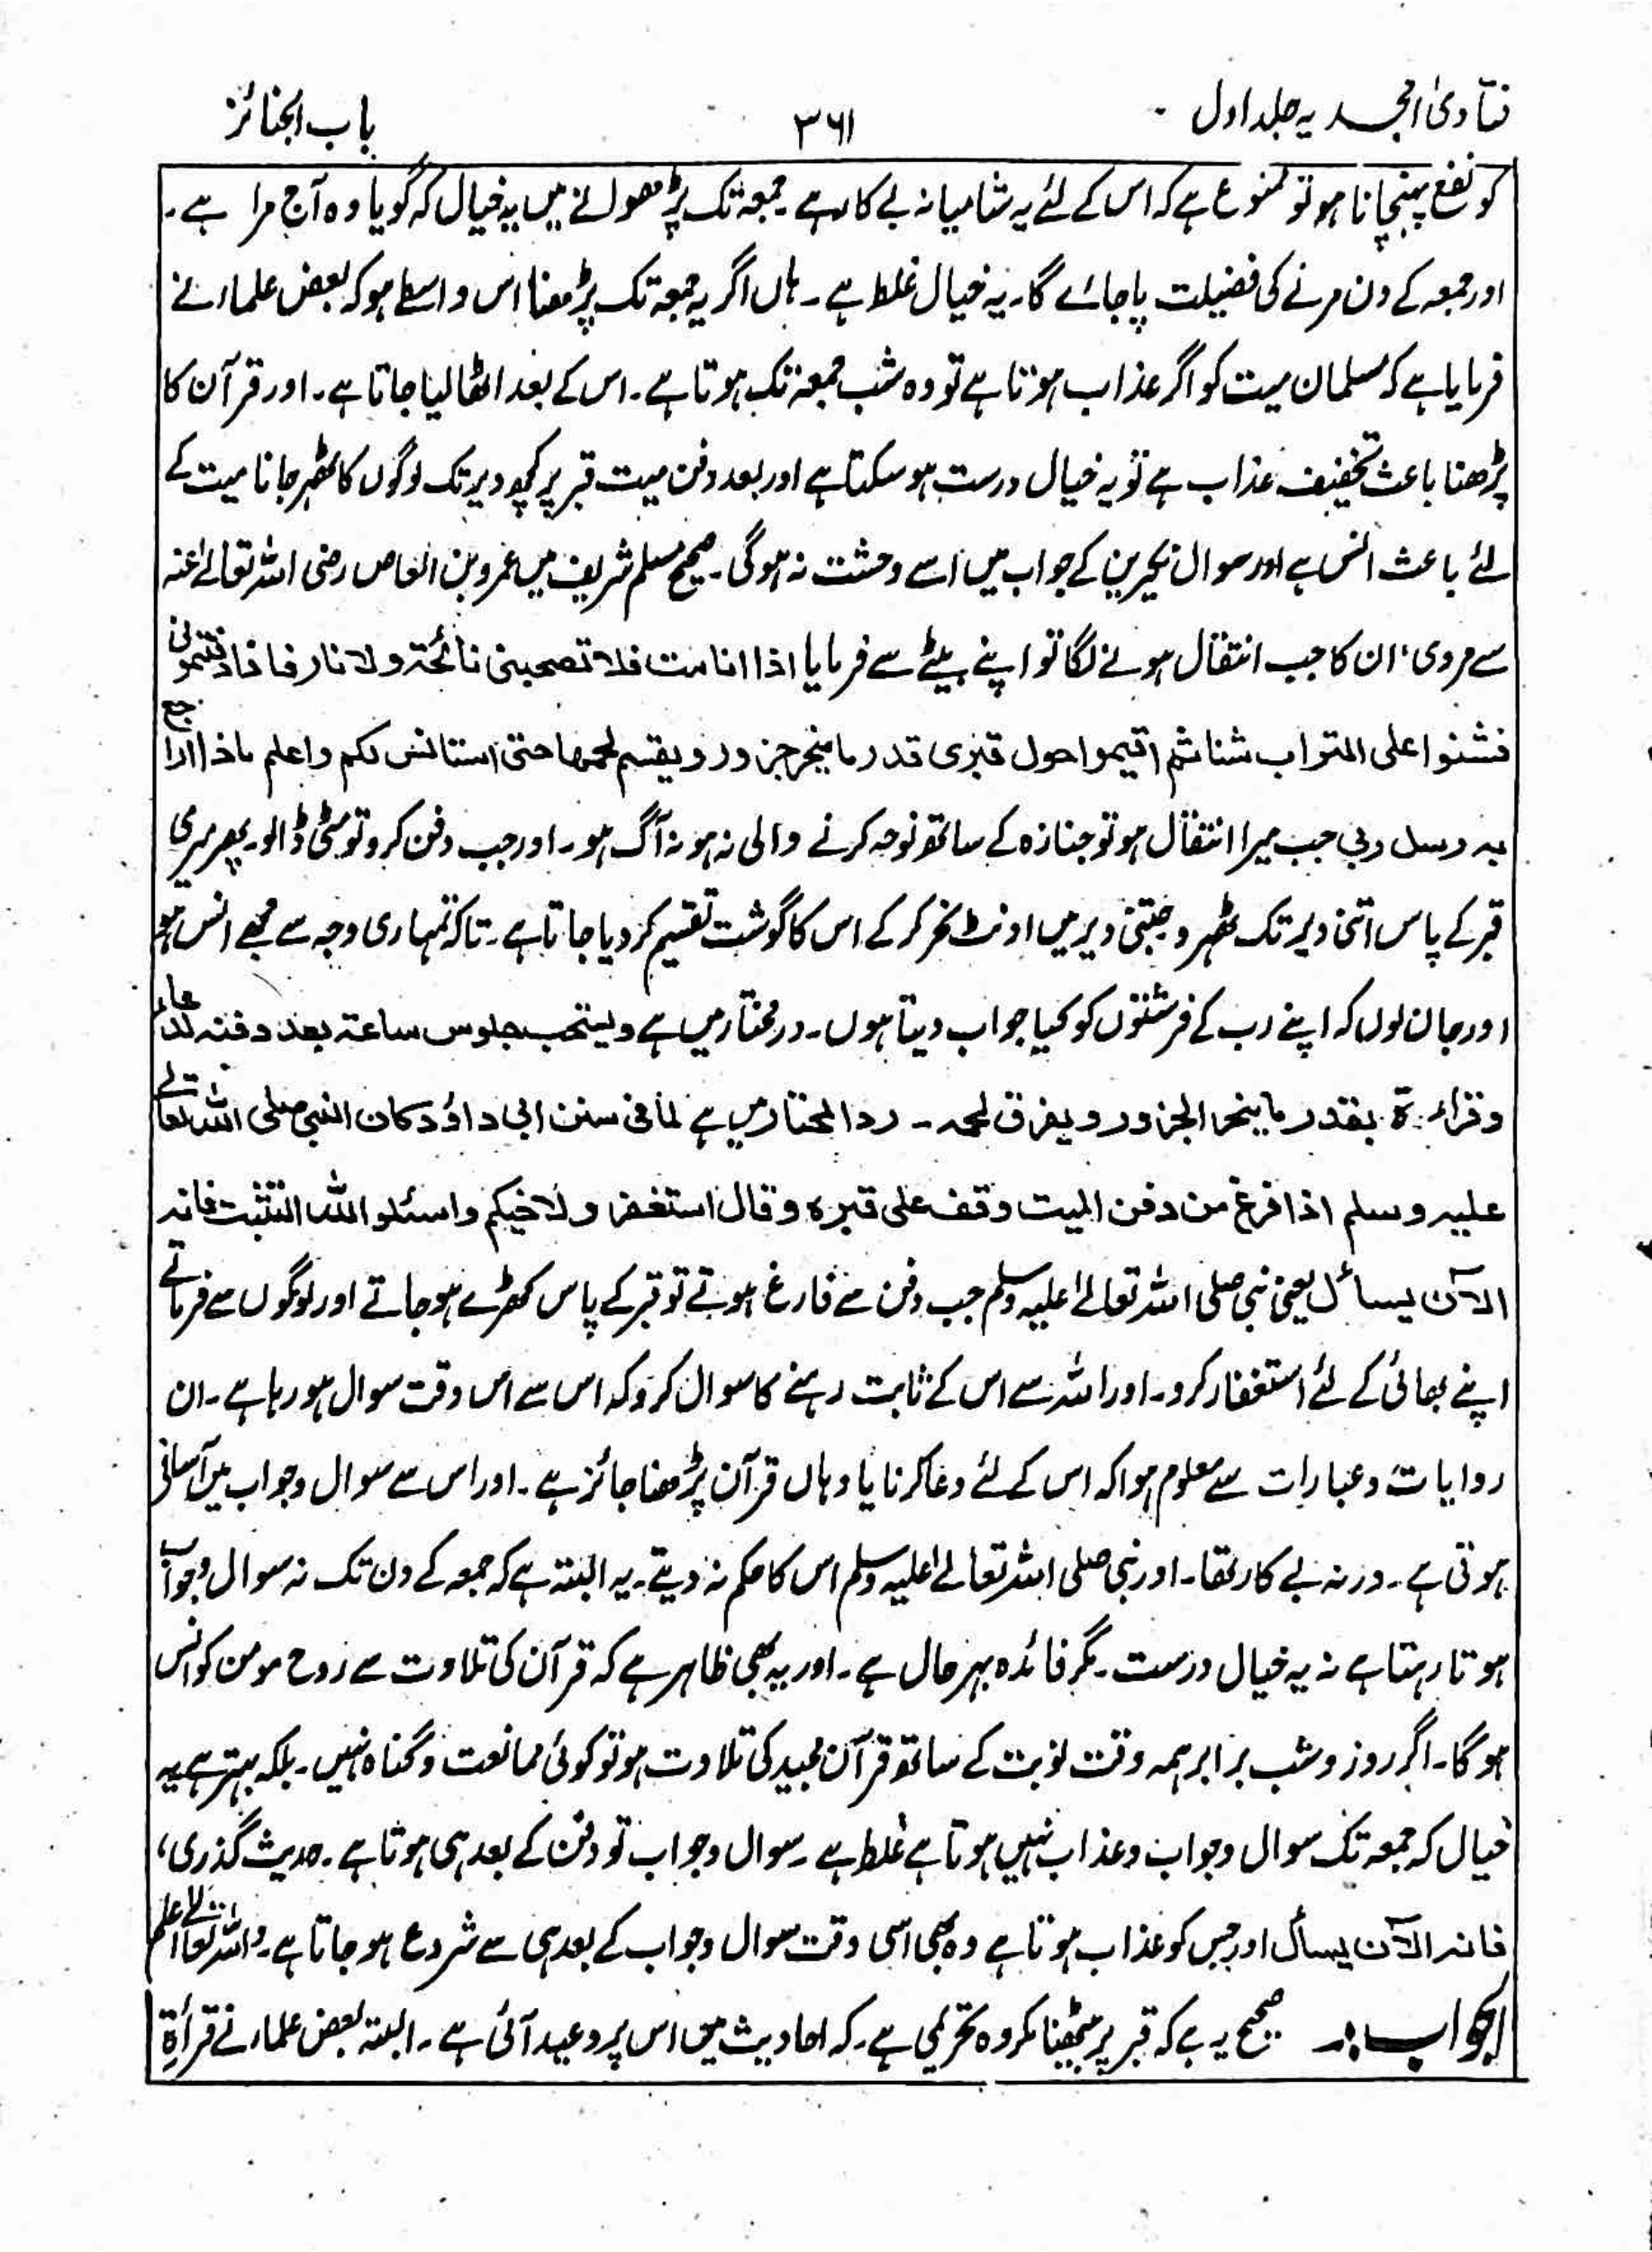 فتاویٰ امجدیہ جلد اول
۳۶۱
باب الجنائز
کو نفع پہنچانا ہو تو ممنوع ہے کہ اس کے لئے یہ شامیانہ بے کار ہے جمعہ تک پڑھوانے میں یہ خیال کہ گویا وہ آج مرا ہے۔
اور جمعہ کے دن مرنے کی فضیلت پا جائے گا۔ یہ خیال غلط ہے۔ ہاں اگر یہ جمعہ تک پڑھنا اس واسطے ہو کہ بعض علماء نے
فرمایا ہے کہ مسلمان میت کو اگر عذاب ہوتا ہے تو وہ شب جمعہ تک ہوتا ہے۔ اس کے بعد اٹھا لیا جاتا ہے۔ اور قرآن کا
پڑھنا باعث تخفیف عذاب ہے تو یہ خیال درست ہو سکتا ہے اور بعد دفن میت قبر پر کچھ دیر تک لوگوں کا ٹھہر جانا میت کے
لئے باعث انس ہے اور سوال نکیرین کے جواب میں اسے وحشت نہ ہوگی۔ صحیح مسلم شریف میں عمرو بن العاص رضی اللہ تعالےٰ عنہ
سے مروی، ان کا جب انتقال ہونے لگا تو اپنے بیٹے سے فرمایا اذا انا مت فلا تصحبنی نائحۃ ولا نار فاذا دفنتمونی
فشنوا علی التراب شنا ثم اقیموا حول قبری قدر ما ینحر جزور ویقسم لحمھا حتی استانس بکم واعلم ماذا اراجع
بہ رسل ربی جب میرا انتقال ہو تو جنازہ کے ساتھ نوحہ کرنے والی نہ ہو نہ آگ ہو۔ اور جب دفن کرو تو مٹی ڈالو۔ پھر میری
قبر کے پاس اتنی دیر تک ٹھہرو جتنی دیر میں اونٹ نحر کر کے اس کا گوشت تقسیم کر دیا جاتا ہے۔ تاکہ تمہاری وجہ سے مجھے انس ہو
اور جان لوں کہ اپنے رب کے فرشتوں کو کیا جواب دیتا ہوں۔ درمختار میں ہے ویستحب جلوس ساعۃ بعد دفنہ لدعاء
وقراءۃ بقدر ما ینحر الجزور ویفرق لحمہ۔ ردالمحتار میں ہے لما فی سنن ابی داؤد کان النبی صلی اللہ تعالےٰ
علیہ وسلم اذا فرغ من دفن المیت وقف علی قبرہ وقال استغفروا لاخیکم واسئلوا اللہ التثبت فانہ
الآن یسأل یعنی نبی صلی اللہ تعالےٰ علیہ وسلم جب دفن سے فارغ ہوتے تو قبر کے پاس کھڑے ہو جاتے اور لوگوں سے فرماتے
اپنے بھائی کے لئے استغفار کرو۔ اور اللہ سے اس کے ثابت رہنے کا سوال کرو کہ اس سے اس وقت سوال ہو رہا ہے۔ ان
روایات و عبارات سے معلوم ہوا کہ اس کے لئے دعا کرنا یا وہاں قرآن پڑھنا جائز ہے۔ اور اس سے سوال وجواب میں آسانی
ہوتی ہے۔ ورنہ بے کار تھا۔ اور نبی صلی اللہ تعالےٰ علیہ وسلم اس کا حکم نہ دیتے۔ یہ البتہ ہے کہ جمعہ کے دن تک نہ سوال وجواب
ہوتا رہتا ہے نہ یہ خیال درست۔ مگر فائدہ بہر حال ہے۔ اور یہ بھی ظاہر ہے کہ قرآن کی تلاوت سے روح مومن کو انس
ہوگا۔ اگر روز و شب برابر ہمہ وقت نوبت کے ساتھ قرآن مجید کی تلاوت ہو تو کوئی ممانعت وگناہ نہیں۔ بلکہ بہتر ہے یہ
خیال کہ جمعہ تک سوال وجواب وعذاب نہیں ہوتا ہے غلط ہے۔ سوال وجواب تو دفن کے بعد ہی ہوتا ہے۔ حدیث گذری،
فانہ الآن یسأل اور جس کو عذاب ہوتا ہے وہ بھی اسی وقت سوال وجواب کے بعد ہی سے شروع ہو جاتا ہے۔ واللہ تعالےٰ اعلم
الجواب:۔ صحیح یہ ہے کہ قبر پر بیٹھنا مکروہ تحریمی ہے۔ کہ احادیث میں اس پر وعید آئی ہے۔ البتہ بعض علماء نے قرأۃِ